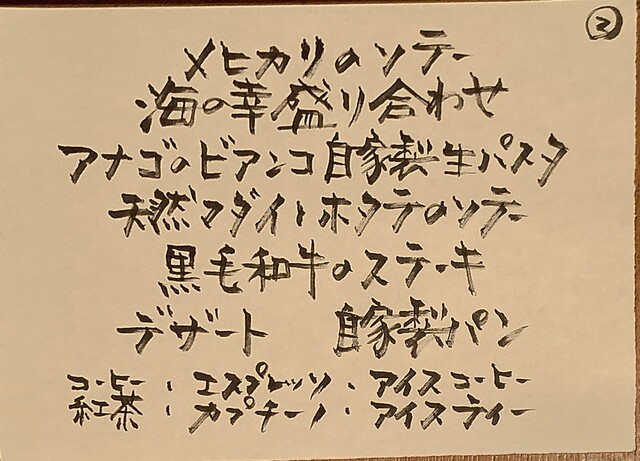 ②
メヒカリのソテー
海の幸盛り合わせ
アナゴのビアンコ自家製生パスタ
天然マダイとホタテのソテー
黒毛和牛のステーキ
デザート 自家製パン
コーヒー・エスプレッソ・アイスコーヒー
紅茶・カプチーノ・アイスティー